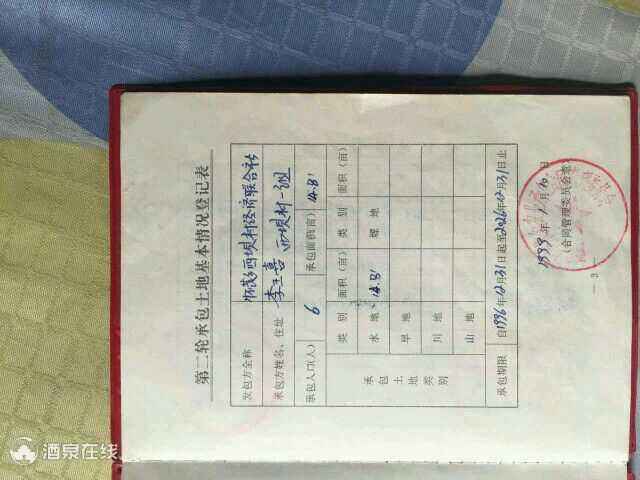 第二轮承包土地基本情况登记表
发包方全称 西坝村经济联合社
承包方姓名、住址 李玉喜 西坝村一组
承包人口(人) 6 承包面积(亩) 14.81
承包土地类别 类别 面积(亩) 类别 面积(亩)
水地 14.81 地
旱地
川地
山地
承包期限 自1996年12月31日起至2026年12月31日止
1999年1月10日
(合同管理委员会章)
— 3 —
酒泉在线